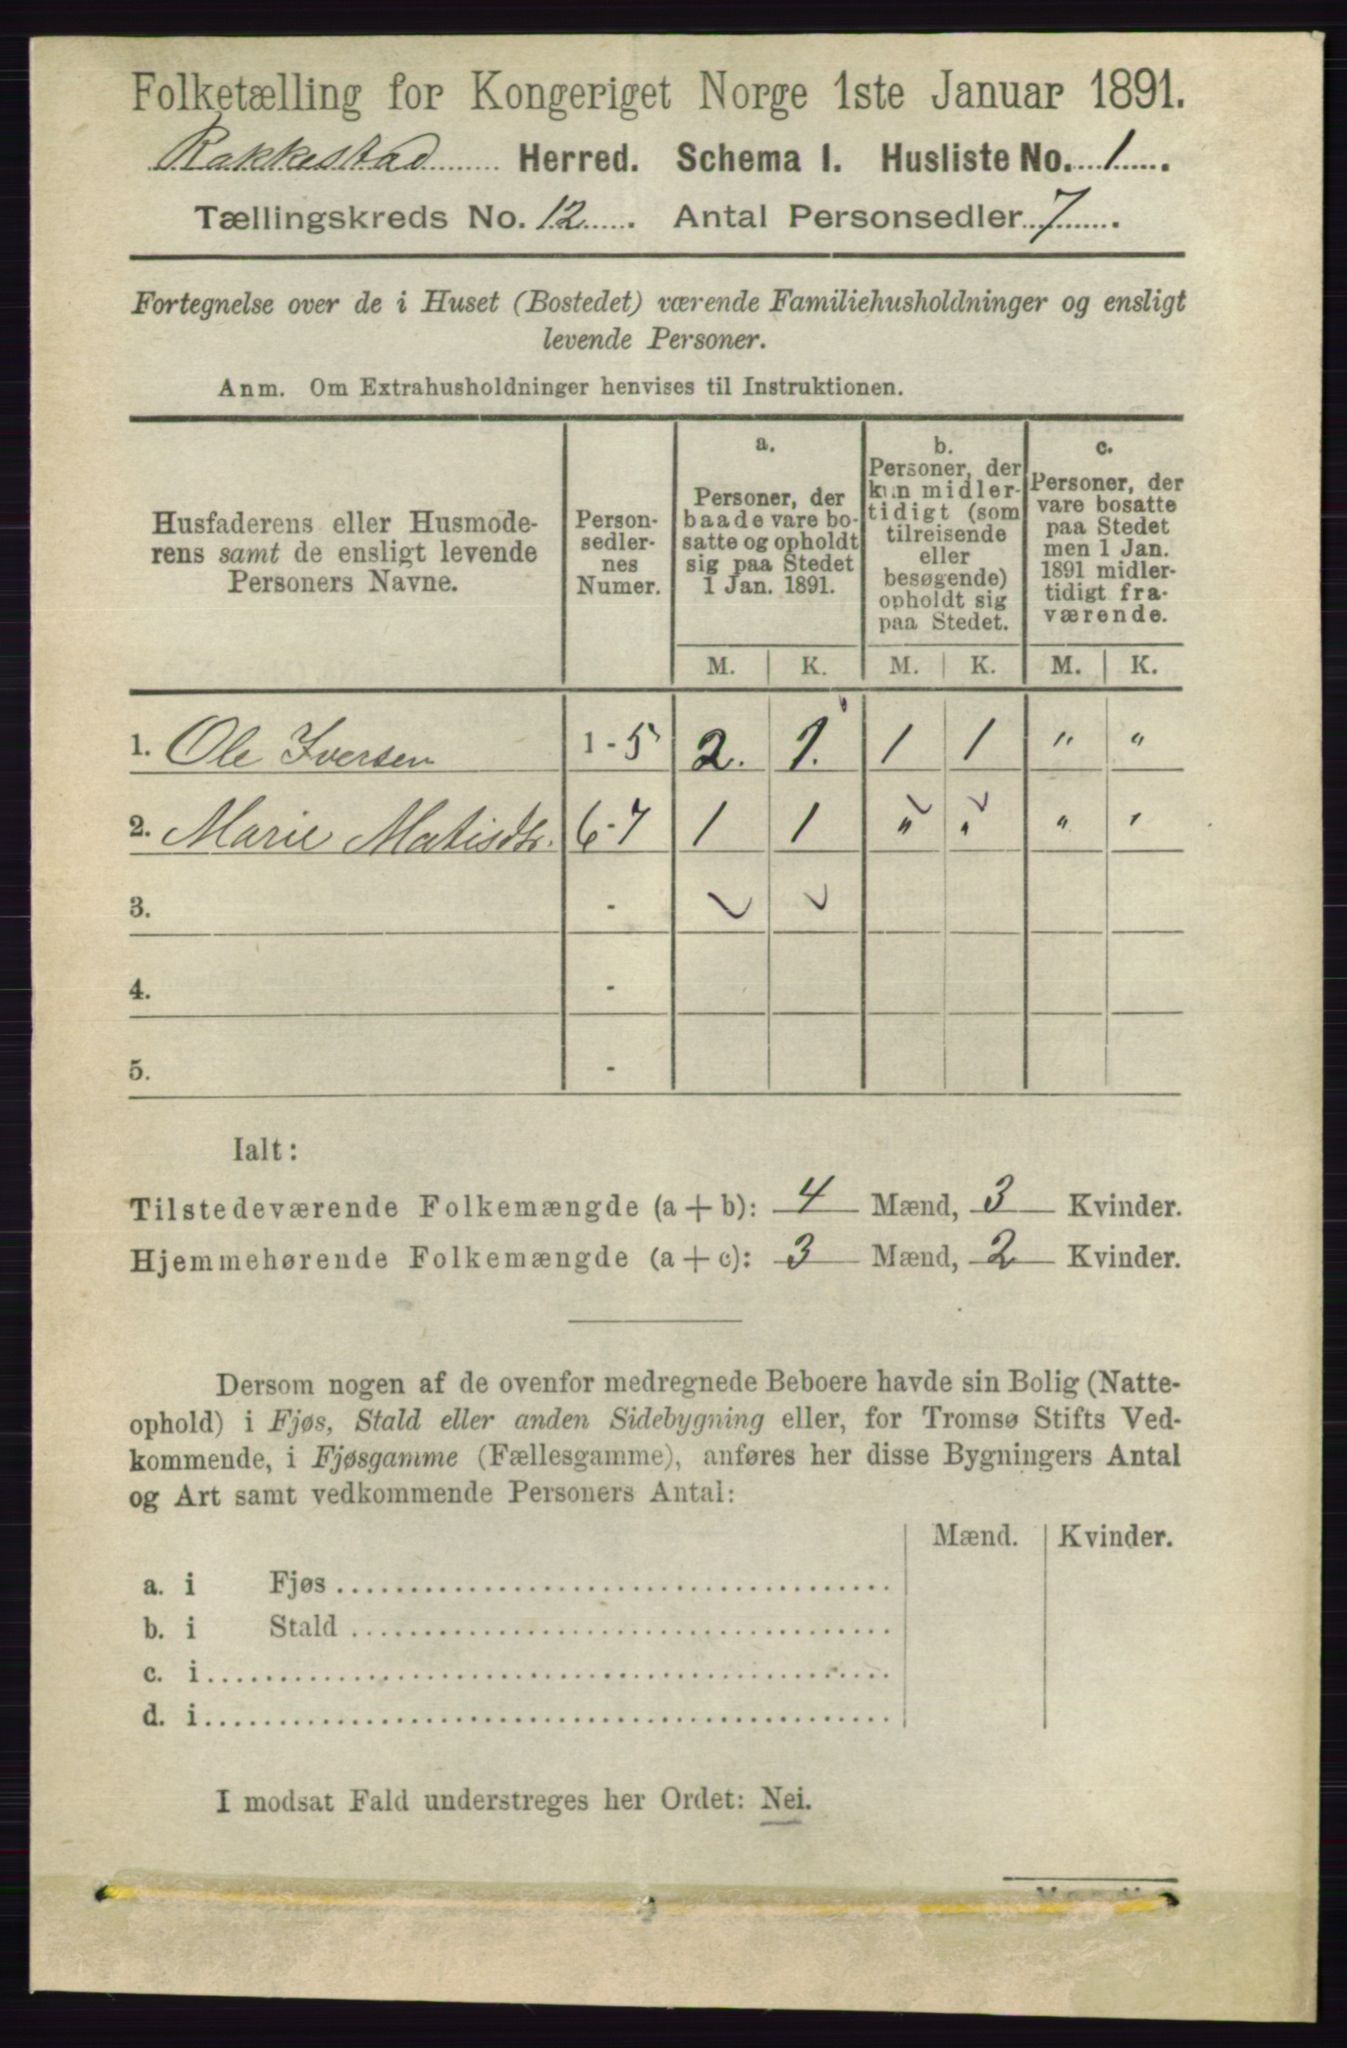 Folketælling for Kongeriget Norge 1ste Januar 1891.
Rakkestad Herred. Schema I. Husliste No. 1.
Tællingskreds No. 12. Antal Personsedler 7.
Fortegnelse over de i Huset (Bostedet) værende Familiehusholdninger og ensligt
levende Personer.
Anm. Om Extrahusholdninger henvises til Instruktionen.
Husfaderens eller Husmode-
rens samt de ensligt levende
Personers Navne.
Person-
sedler-
nes
Numer.
a.
Personer, der
baade vare bo-
satte og opholdt
sig paa Stedet
1 Jan. 1891.
b.
Personer, der
kun midler-
tidigt (som
tilreisende
eller
besøgende)
opholdt sig
paa Stedet.
c.
Personer, der
vare bosatte
paa Stedet
men 1 Jan.
1891 midler-
tidigt fra-
værende.
M. K. M. K. M. K.
1. Ole Iversen 1 - 5 2. 1. 1 1 " "
2. Marie Matisdtr. 6 - 7 1 1 " " " "
3. -
4. -
5. -
Ialt:
Tilstedeværende Folkemængde (a + b): 4 Mænd, 3 Kvinder.
Hjemmehørende Folkemængde (a + c): 3 Mænd, 2 Kvinder.
Dersom nogen af de ovenfor medregnede Beboere havde sin Bolig (Natte-
ophold) i Fjøs, Stald eller anden Sidebygning eller, for Tromsø Stifts Ved-
kommende, i Fjøsgamme (Fællesgamme), anføres her disse Bygningers Antal
og Art samt vedkommende Personers Antal:
Mænd. Kvinder.
a. i Fjøs
b. i Stald
c. i
d. i
I modsat Fald understreges her Ordet: Nei.